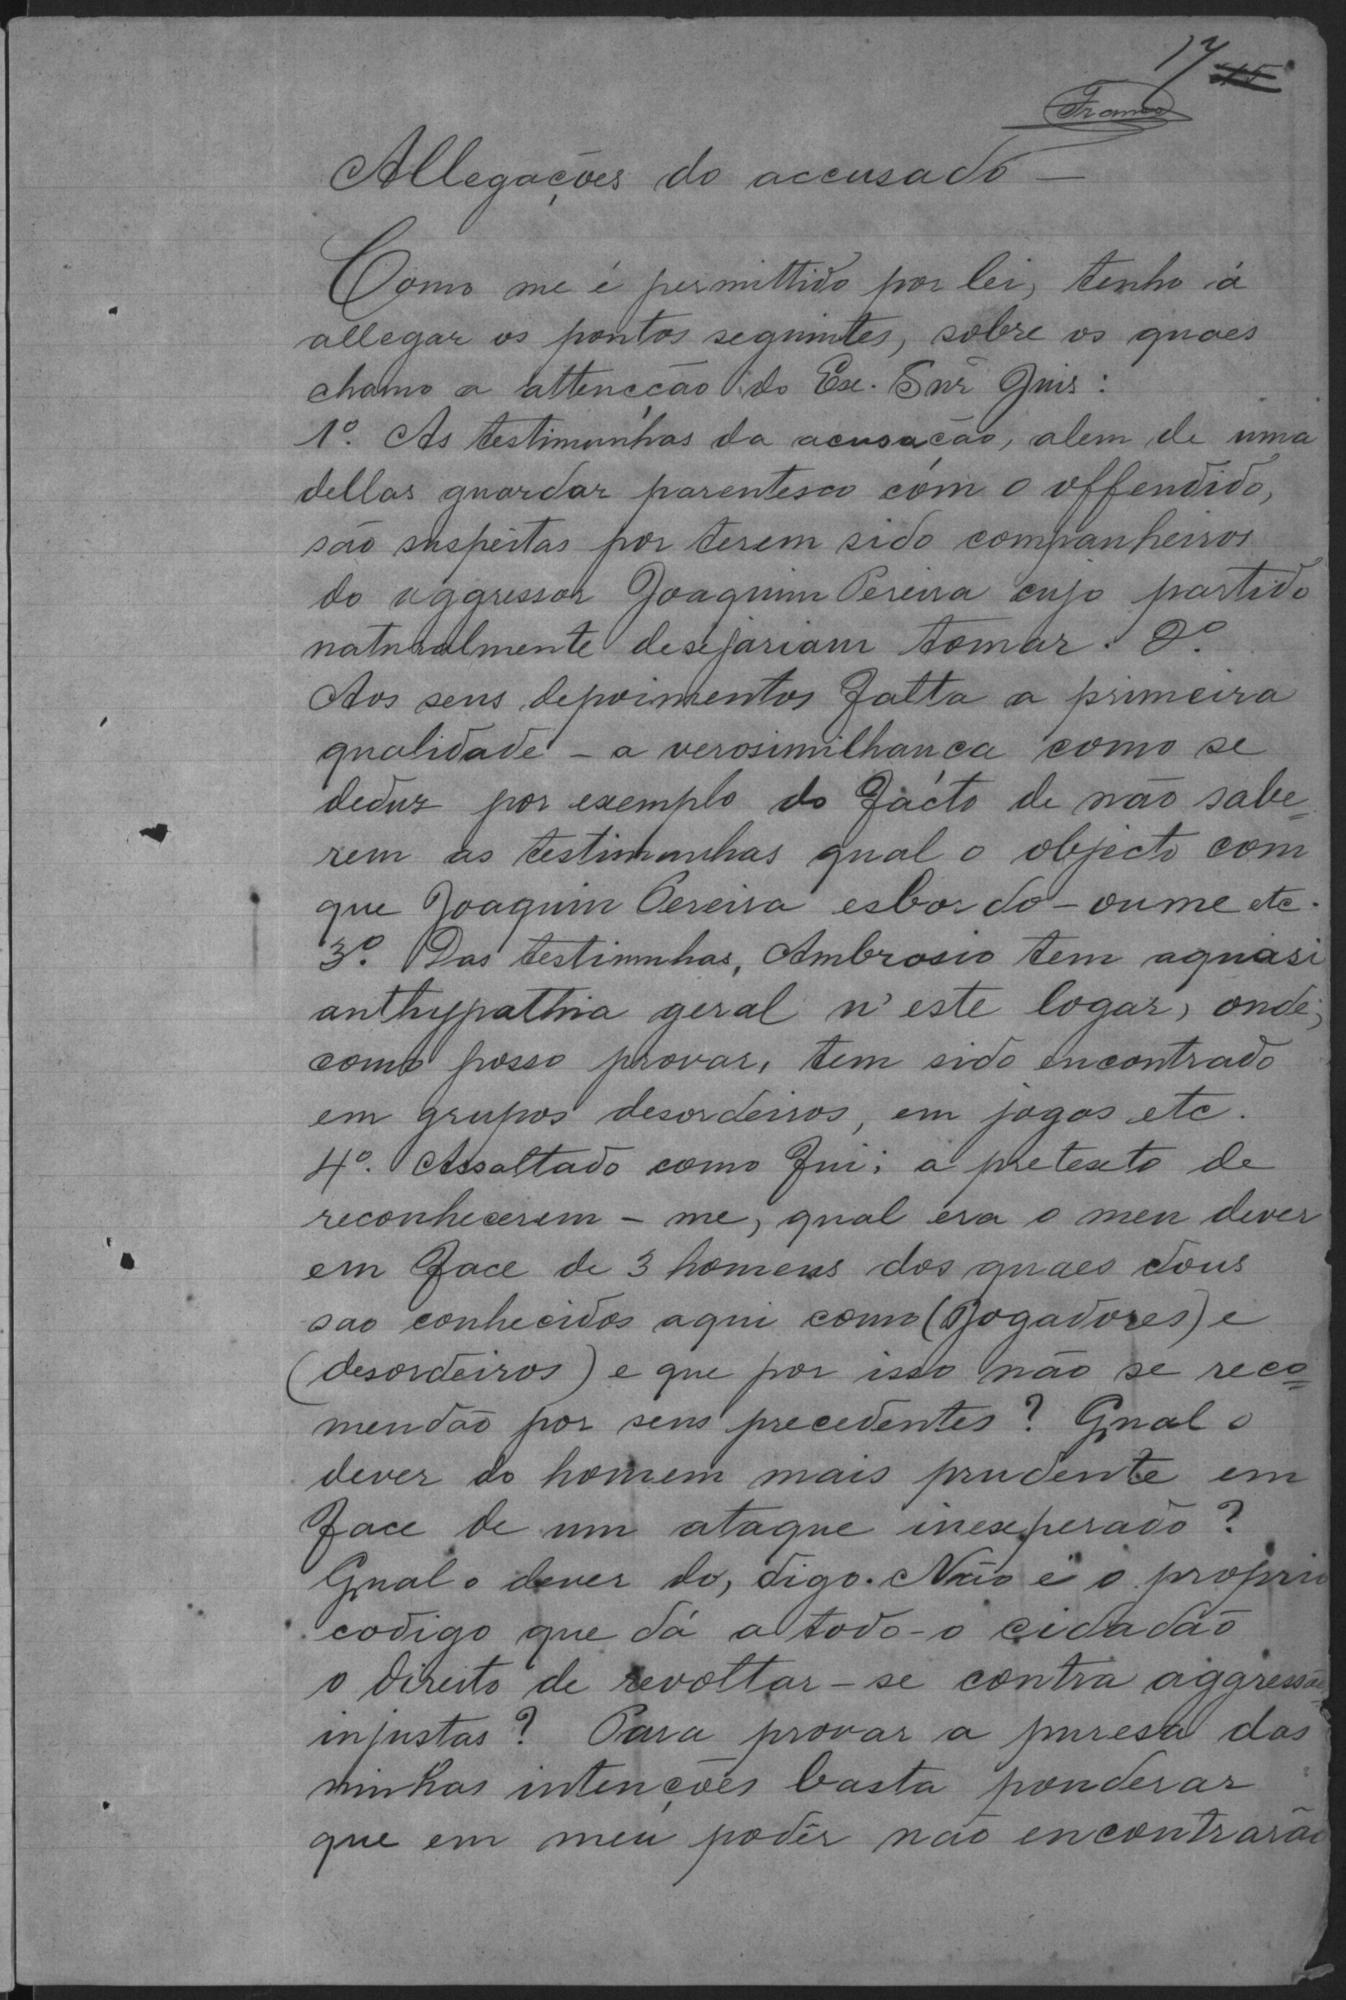 17 15
Franco
Allegações do accusado —
Como me é permittido por lei, tenho á
allegar os pontos seguintes, sobre os quaes
chamo a attencção do Ex. Snr Juis:
1º. As testimunhas da acusação, alem de uma
dellas guardar parentesco com o offendido,
são suspeitas por terem sido companheiros
do aggressor Joaquim Pereira cujo partido
naturalmente desejariam tomar. 2º.
Aos seus depoimentos falta a primeira
qualidade - a verosimilhança como se
deduz por exemplo do facto de não sabe=
rem as testimunhas qual o objecto com
que Joaquim Pereira esbordo-oume etc.
3º. Das testimnhas, Ambrosio tem aquasi
anthypathia geral n'este logar, onde,
como posso provar, tem sido encontrado
em grupos desordeiros, em jogos etc.
4º. Assaltado como fui; a pretexto de
reconhecerem-me, qual era o meu dever
em face de 3 homens dos quaes dous
sao conhecidos aqui como (Jogadores) e
(desordeiros) e que por isso não se reco=
mendão por seus precedentes? Qual o
dever do homem mais prudente em
face de um ataque inexperado?
Qual o dever do, digo. Não é o proprio
codigo que dá a todo-o cidadão
o direito de revoltar-se contra aggressões
injustas? Para provar a puresa das
minhas intenções basta ponderar
que em meu podêr não encontrarão